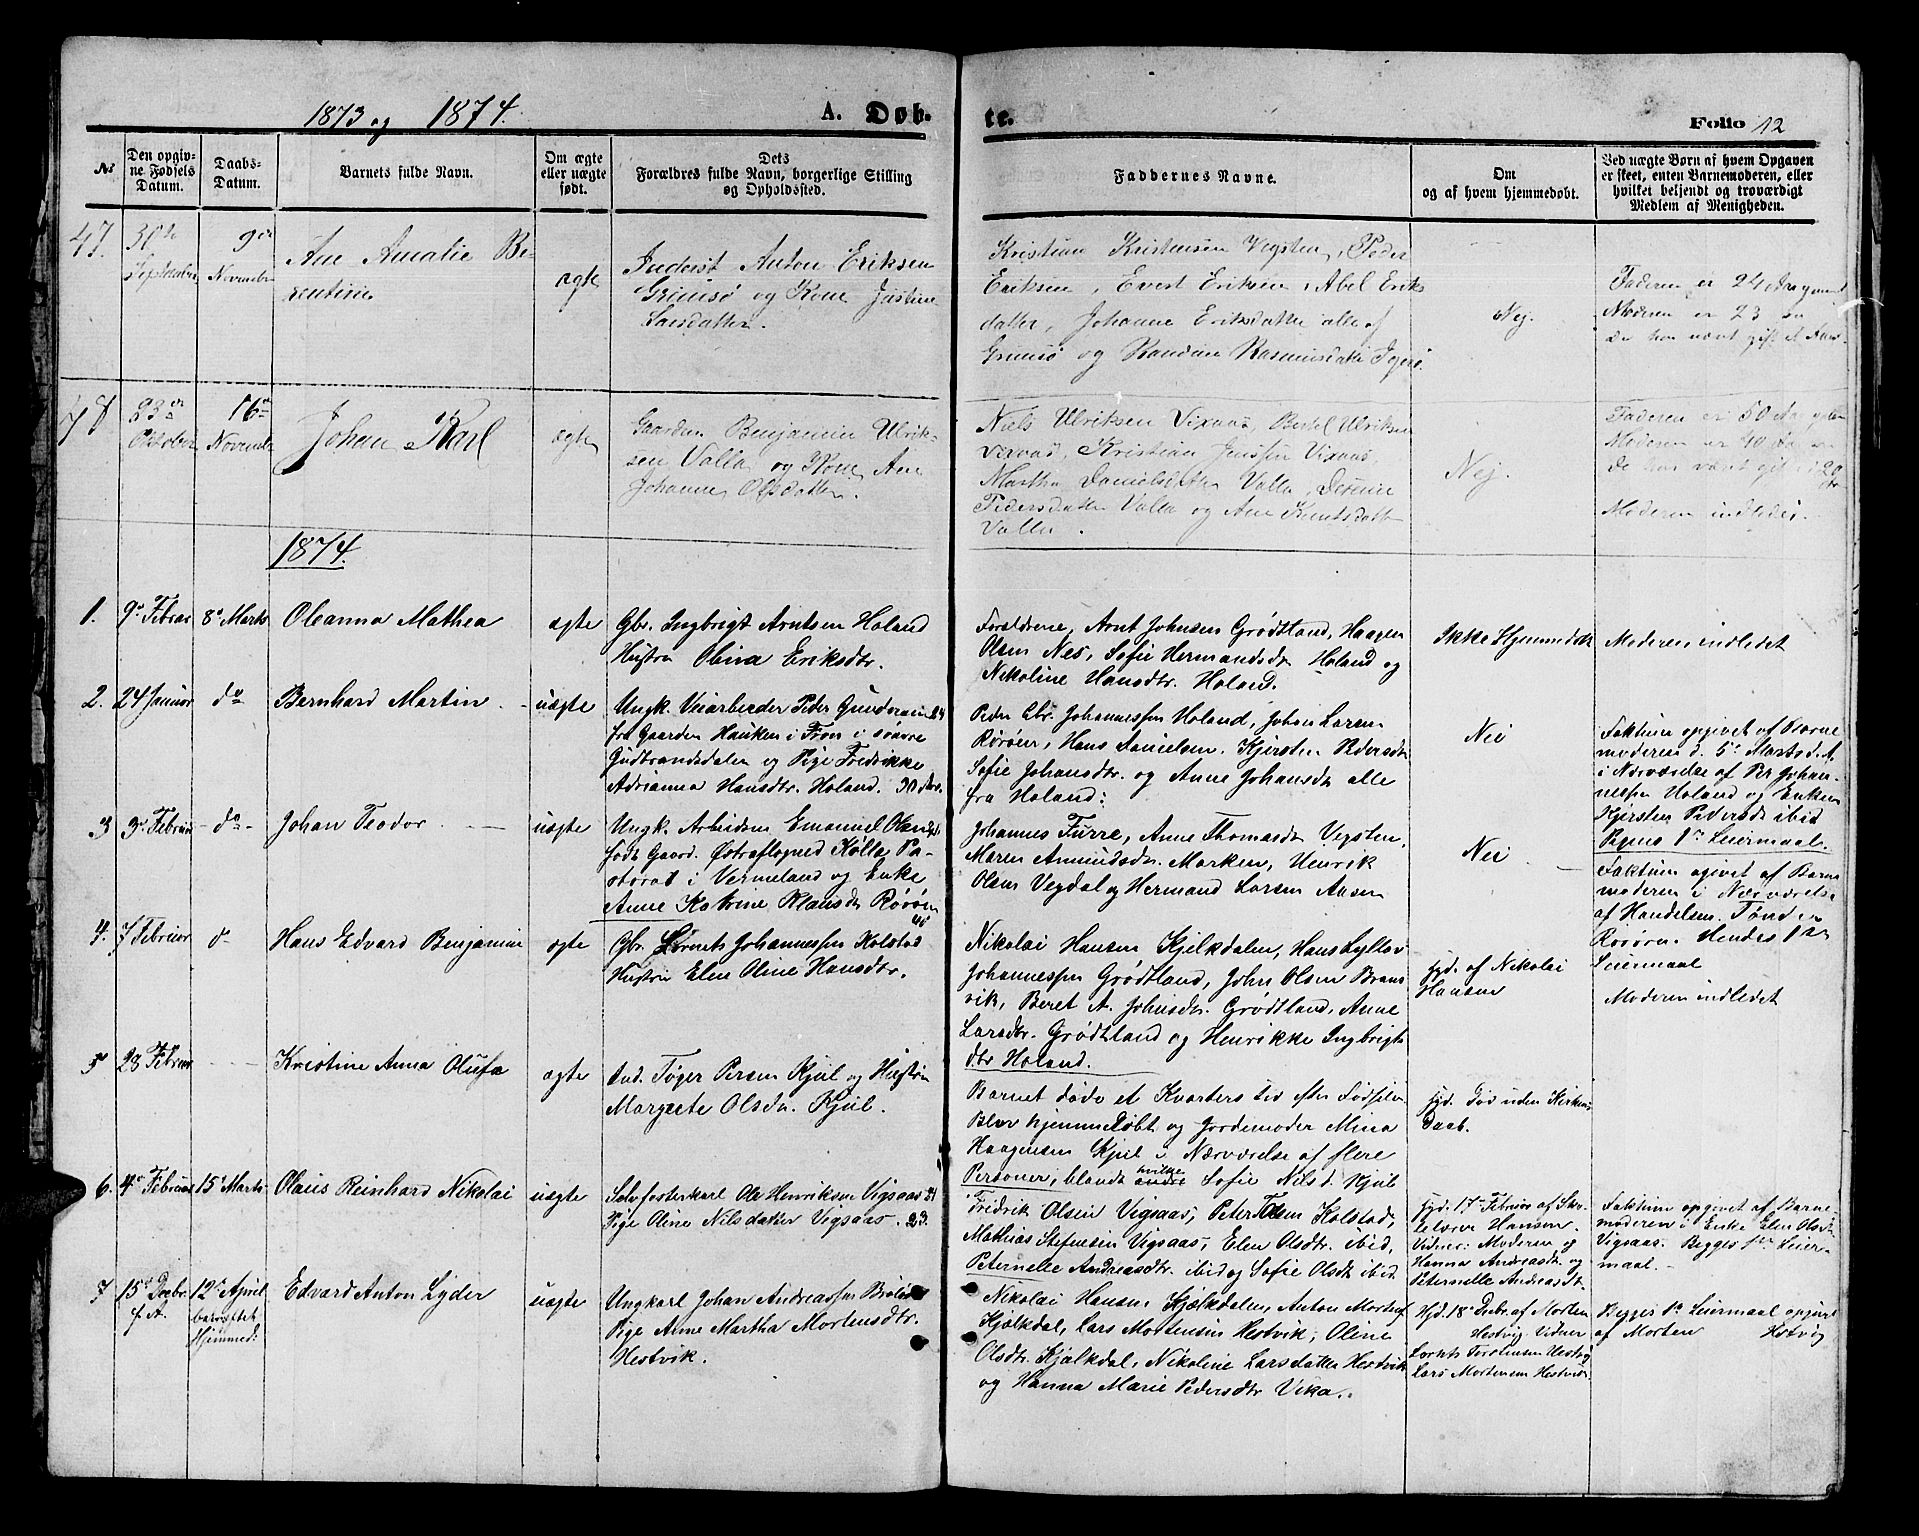 1873 og 1874.
A. Døb-
te.
Folio 12
№
Den opgiv-
ne Fødsels
Datum.
Daabs-
Datum.
Barnets fulde Navn.
Om ægte
eller uægte
født.
Dets
Forældres fulde Navn, borgerlige Stilling
og Opholdssted.
Faddernes Navne.
Om
og af hvem hjemmedøbt.
Ved uægte Børn af hvem Opgaven
er skeet, enten Barnemoderen, eller
hvilket bekjendt og troværdigt
Medlem af Menigheden.
47.
30te
September
9de
November
Ane Amalie Be-
rentine
ægte
Inderst Anton Eriksen
Grimsø og Kone Justine
Larsdatter.
Kristian Kristensen Vegsten, Peder
Eriksen, Evert Eriksen, Abel Eriks
datter, Johanne Eriksdatter alle af
Grimsø og Randine Rasmusdatter
Nej.
Faderen er 24 Aar
Moderen er 23 Aa
De har været gift
48
23de
Oktober
16de
November
Johan Karl
ægte
Gaardm. Benjamin Ulrik-
sen Valla og Kone Ane
Johanne Olsdatter.
Niels Ulriksen Vixaas, Bertel Ulriksen
Kristian Jenssen Vixaas,
Martha Danielsdatter Valla,
Pedersdatter Valla og Ane Knutsdatter
Valla.
Nej.
Faderen er 50 Aa
Moderen er 40 Aa
De har været gift i 20
Aar
Moderen indledes.
1874.
1.
9de Febuar
8de Marts
Oleanna Mathea
ægte
Gbr. Ingbrigt Arntsen Holand
Hustru Olina Eriksdtr.
Forældrene, Arnt Johnsen Grødtland, Haagen
Olsen Nes, Sofie Hermandsdtr Holand og
Nikoline Hansdtr. Holand.
Ikke Hjemmedøbt
Moderen indledet
2.
24 Januar
do
Bernhard Martin
uægte
Ungk. Veiarbeider Peder Gundersen 24
fra Gaarden Hauken i Fron i søndre
Gudbrandsdalen og Pige Fredrikke
Adrianna Hansdtr. Holand. 30 Aar.
Peder Chr. Johannessen Holand, Johan Larsen
Rørøen, Hans Danielsen. Kjersten Pedersdtr
Sofie Johansdtr. og Anne Johansdtr alle
fra Holand.
Nei
Faktum opgivet af Barne
moderen d. 5te Marts d. A.
i Nærværelse af Per Johan-
nessen Holand og Enken
Kjersten Pedersdtr ibid
Pigens 1ste Leiermaal.
3
3de Februar
do
Johan Teodor
uægte
Ungk. Arbeidsm Emanuel Olsen
født Gaard. Østraflogned Kølla Pa-
storat i Vermeland og Enke
Anne Katrine Klausdtr Rørøen
Johannes Furre, Anne Thomasdtr Vegsten,
Maren Amundsdtr. Marken, Henrik
Olsen Vegdal og Hermand Larsen Aasen
Nei
Faktum ogivet af Barne
moderen i Nærværelse
af Handelsm. Tønder
Rørøen. Hendes 1ste
Leiermaal
4.
7 Februar
do
Hans Edvard Benjamin
ægte
Gbr. Lorents Johannessen Kolstad
Hustru Elen Oline Hansdtr.
Nikolai Hansen Kjelkdalen, Hans Lyllov
Johannessen Grødtland, John Olsen Brans
vik, Beret A. Johnsdtr. Grødtland, Anne
Larsdtr. Grødtland og Henrikke Ingbrigts
dtr Holand.
hjd. af Nikolai
Hansen
Moderen indledet
5
28 Februar
Kristine Anna Olufa
ægte
Ind. Tøger Persen Kjul og Hustru
Margrete Olsdtr. Kjul.
Barnet døde et Kvarters tid efter Fødselen
Blev hjemmeDøbt og Jordemoder Mina
Haagensen Kjul i Nærværelse af flere
Personer, blandt hvilke andre Sofie Nilsd. Kjul
hjd. Død uden Kirkens
Daab.
6.
4de Februar
15de Marts
Olaus Reinhard Nikolai
uægte
Selvfosterkarl Ole Henriksen Vigsaas 31
Pige Oline Nilsdatter Vigsaas. 23.
Fredrik Olsen Vigsaas, Peter Kolstad,
Mathias Stefensen Vigsaas, Elen Olsdtr. ibid,
Peternelle Andreasdtr. ibid og Sofie Olsdtr ibid.
hjd. 17de Februar af Sko-
lelærer Hansen.
Vidner: Moderen og
Hanna Andreasdtr. og
Peternelle Andreasdtr.
Faktum opgivet af Barne-
moderen i Enke Elen Olsdtr
Vigsaas. Begges 1ste Leier-
maal.
7
15de Decbr.
f. A.
12te April
bekræftet
Hjemmed:
Edvard Anton Lyder
uægte
Ungkarl Johan Andreassen
Pige Anne Martha Mortensdtr.
Hestvik.
Nikolai Hansen Kjælkdalen, Anton Mortens
Kjælkdal, Lars Mortensen Hestvik, Oline
Olsdtr. Kjælkdal, Nikoline Larsdatter Hestvik
og Hanna Marie Pedersdtr Vika.
Hjd. 18de Decbr. af Morten
Hestvig Vidner
Lornts Torstensen Hestvig
Lars Mortensen Hestvik.
Begges 1ste Leiermaal opgivet
af Morten Hestvig